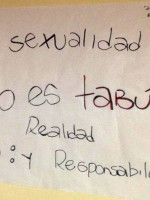 sexualidad
o es TABÚ
Realidad
: y Responsabil